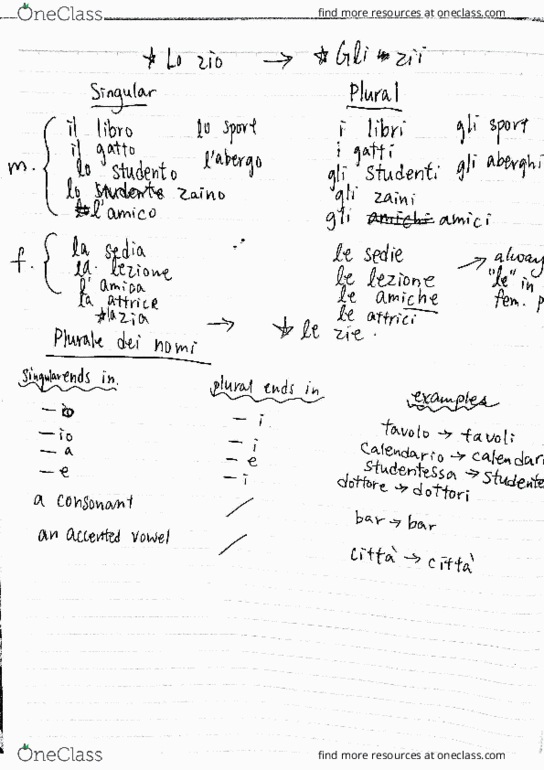 OneClass find more resources at oneclass.com
* Lo zio → * Gli zii
Singular Plural
m. il libro lo sport i libri gli sport
il gatto l'abergo i gatti gli aberghi
lo studento gli studenti
lo zaino gli zaini
l'amico gli amici
f. la sedia le sedie → alway
la lezione le lezione "le" in
l'amica le amiche fem. p
la attrice le attrici
* la zia → * le zie.
Plurale dei nomi
Singular ends in. plural ends in examples
- o - i tavolo → tavoli
- io - i calendario → calendari
- a - e studentessa → studente
- e - i dottore → dottori
a consonant / bar → bar
an accented vowel / città → città
OneClass find more resources at oneclass.com